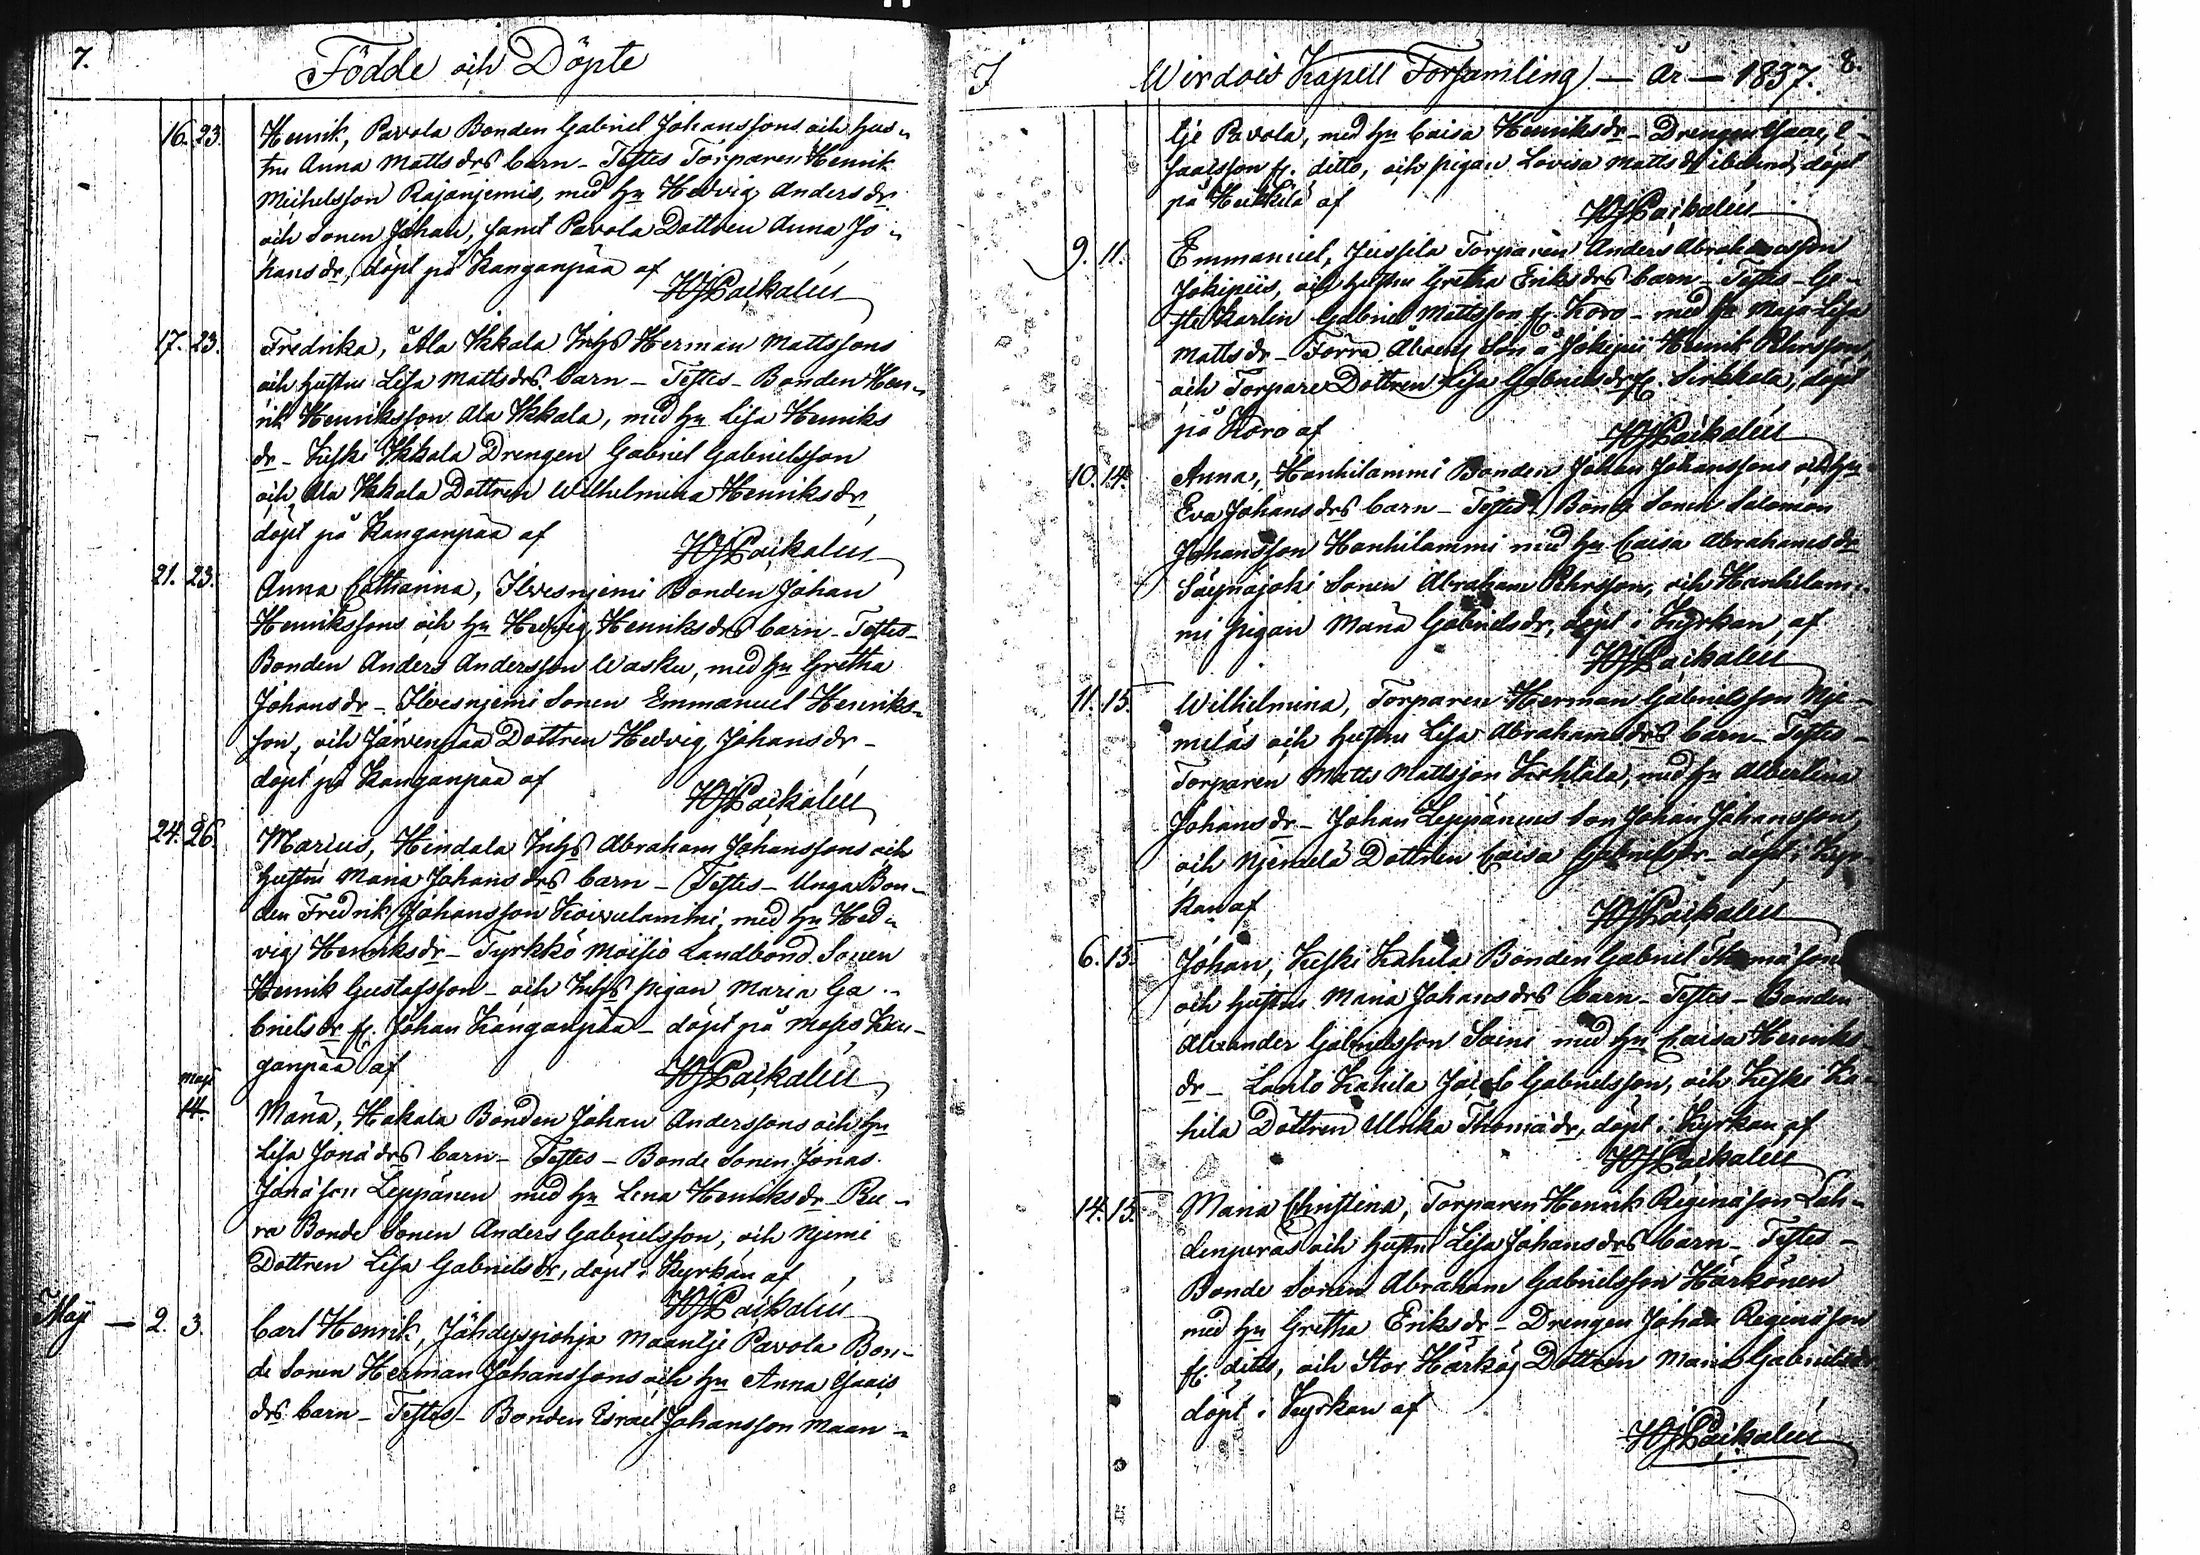 7.
Födde och Döpte
16. 23. Henrik, Pavola Bonden Gabriel Johanssons och hus-
trus Anna Matts drs barn – Testes Torparen Henrik
Michelsson Rajanjemis, med hu Hedvig Anders dr
och Sonen Johan, samt Pavola Dottren Anna Jo-
hans dr, döpt på Kanganpää af
HJPaikalén
17. 23. Fredrika, Ala Ikkala Inhs Herman Mattssons
och hustrus Lisa Matts drs barn – Testes – Bonden Hen-
rik Henriksson Ala Ikkala, med hu Lisa Henriks
dr – Keski Ikkala Drengen Gabriel Gabrielsson
och Ala Ikkala Dottren Wilhelmina Henriks dr
döpt på Kanganpää af
HJPaikalén
21. 23. Anna Catharina, Ilvesnjemi Bonden Johan
Henrikssons och hu Hedvig Henriks drs barn – Testes –
Bonden Anders Andersson Wasku, med hu Gretha
Johans dr – Ilvesnjemi Sonen Emmanuel Henriks-
son, och Järvenpää Dottren Hedvig Johans dr –
döpt på Kanganpää af
HJPaikalén
24. 26. Marius, Hindala Inhs Abraham Johanssons och
hustrus Maria Johans drs barn – Testes – Unga Bon-
den Fredrik Johansson Koivulammi, med hu Hed-
vig Henriks dr – Tyrkkö Moisio Landbond. Sonen
Henrik Gustafsson – och Inhs pigan Maria Ga-
briels dr fr. Johan Kanganpää – döpt på Kan-
ganpää af
HJPaikalén
maji
14. Maria, Hakala Bonden Johan Anderssons och hu
Lisa Jonä drs barn – Testes – Bonde Sonen Jonas
Jonäson Leppänen med hu Lena Henriks dr – Ru-
ra Bonde Sonen Anders Gabrielsson, och Njemi
Dottren Lisa Gabriels dr, döpt i Kyrkan af
HJPaikalén
Maji – 2. 3. Carl Henrik, Jähdyspohja Maantje Pavola Bon-
de Sonen Herman Johanssons och hu Anna Isaacs
drs barn – Testes – Bonden Israel Johansson Maan-
I Wirdois Kapell Forsamling – År – 1837. 8.
tje Pavola, med hu Caisa Henriks dr – Drengen Isaac I-
saacsson fr. ditto, och pigan Lovisa Matts dr ibidem, döpt
på Heikkilä af
HJPaikalén
9. 11. Emmanuel, Jussila Torparen Anders Abrahamsson
Jokipiis, och hustrus Gretha Eriks drs barn – Testes – Ge-
stekarlen Gabriel Mattsson fr. Koro – med hu Maja Lisa
Matts dr – Förra Son å Jokipii Henrik Pehrsson,
och Torpare Dottren Lisa Gabriels dr fr. Sirkkala, döpt
på Koro af
HJPaikalén
10. 14. Anna, Hanhilammi Bonden Johan Johanssons och hu
Eva Johans drs barn – Testes – Bonde Sonen Salomon
Johansson Hanhilammi med hu Caisa Abrahams dr
Säynäjoki Sonen Abraham Pehrsson, och Hanhilam-
mi pigan Maria Gabriels dr, döpt i Kyrkan af
HJPaikalén
11. 15. Wilhelmina, Torparen Herman Gabrielsson Nje-
meläs och hustrus Lisa Abrahams drs barn – Testes –
Torparen Matts Mattsson, med hu Albertina
Johans dr – Johan Leppänens Son Johan Johansson,
och Njemelä Dottren Caisa Gabriels dr – döpt i Kyr-
kan af
HJPaikalén
6. 15. Johan, Keski Kahila Bonden Gabriel Thomäsons
och hustrus Maria Johans drs barn – Testes – Bonden
Alexander Gabrielsson Soini med hu Caisa Henriks
dr – Kahila Jacob Gabrielsson, och Keski Ka-
hila Dottren Ulrika Thomä dr, döpt i Kyrkan af
HJPaikalén
14. 15. Maria Christina, Torparen Henrik Reginäson Läh-
denperäs och hustrus Lisa Johans drs barn – Testes –
Bonde Sonen Abraham Gabrielsson Härkönen
med hu Gretha Eriks dr – Drengen Johan Reginäson
fr. ditto, och Stor Härkö Dottren Maria Gabriels dr
döpt i Kyrkan af
HJPaikalén